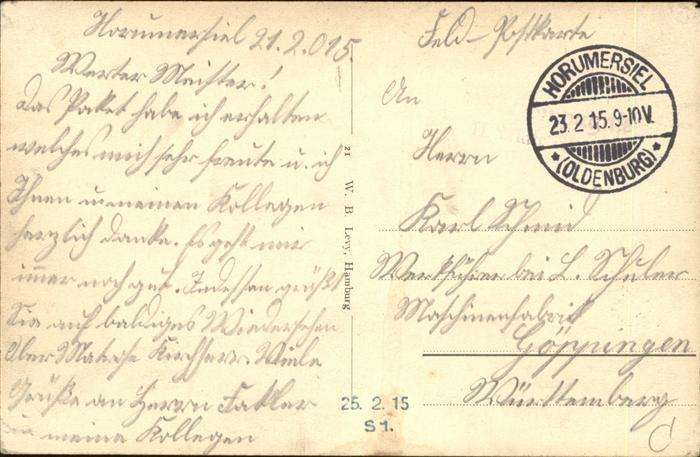 Horumersiel 21.2.015
Werter Meister!
Das Paket habe ich erhalten
welches mich sehr freute u. ich
Ihnen u. meinen Kollegen
herzlich danke. Es geht mir
immer noch gut. Indessen grüßt
Sie auf baldiges Wiedersehen
Ober Matrose Viele
Grüße an Herrn Fakler
u meine Kollegen
21 W. B. Levy, Hamburg
Feld-Postkarte
HORUMERSIEL
23.2 15.9-10V.
* (OLDENBURG) *
An
Herrn
Karl Schmid
Werkführer bei L. Schuler
Maschinenfabrik
Göppingen
Württemberg
25. 2. 15
S 1.